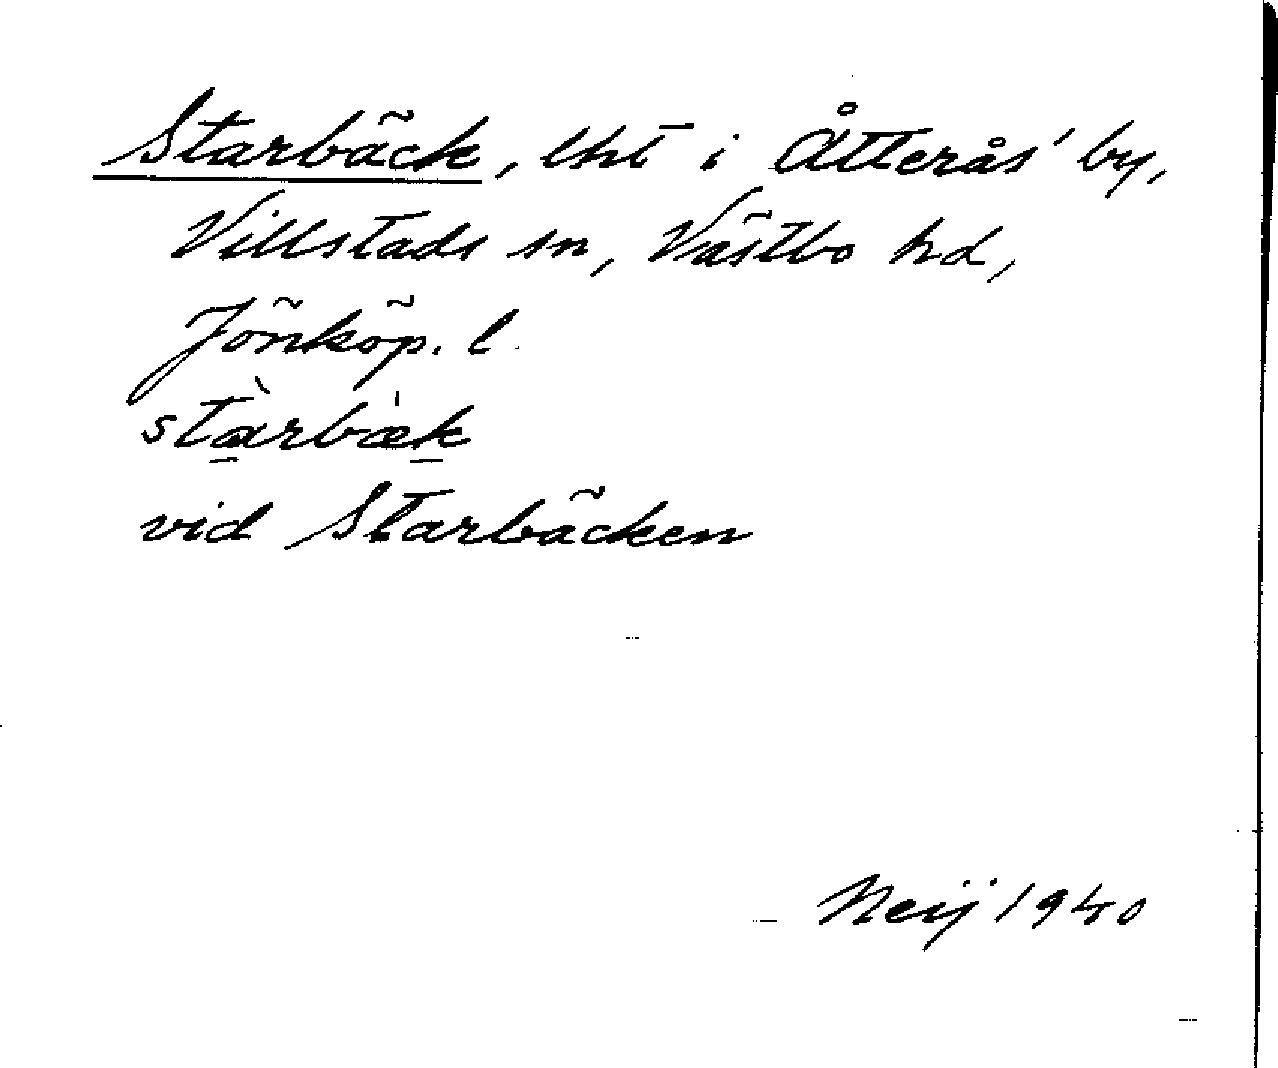 Starbäck, lht i Åtterås' by,
Villstads sn, Västbo hd,
Jönköp. l.
stàrbæ̀k
vid Starbäcken
Neij 1940